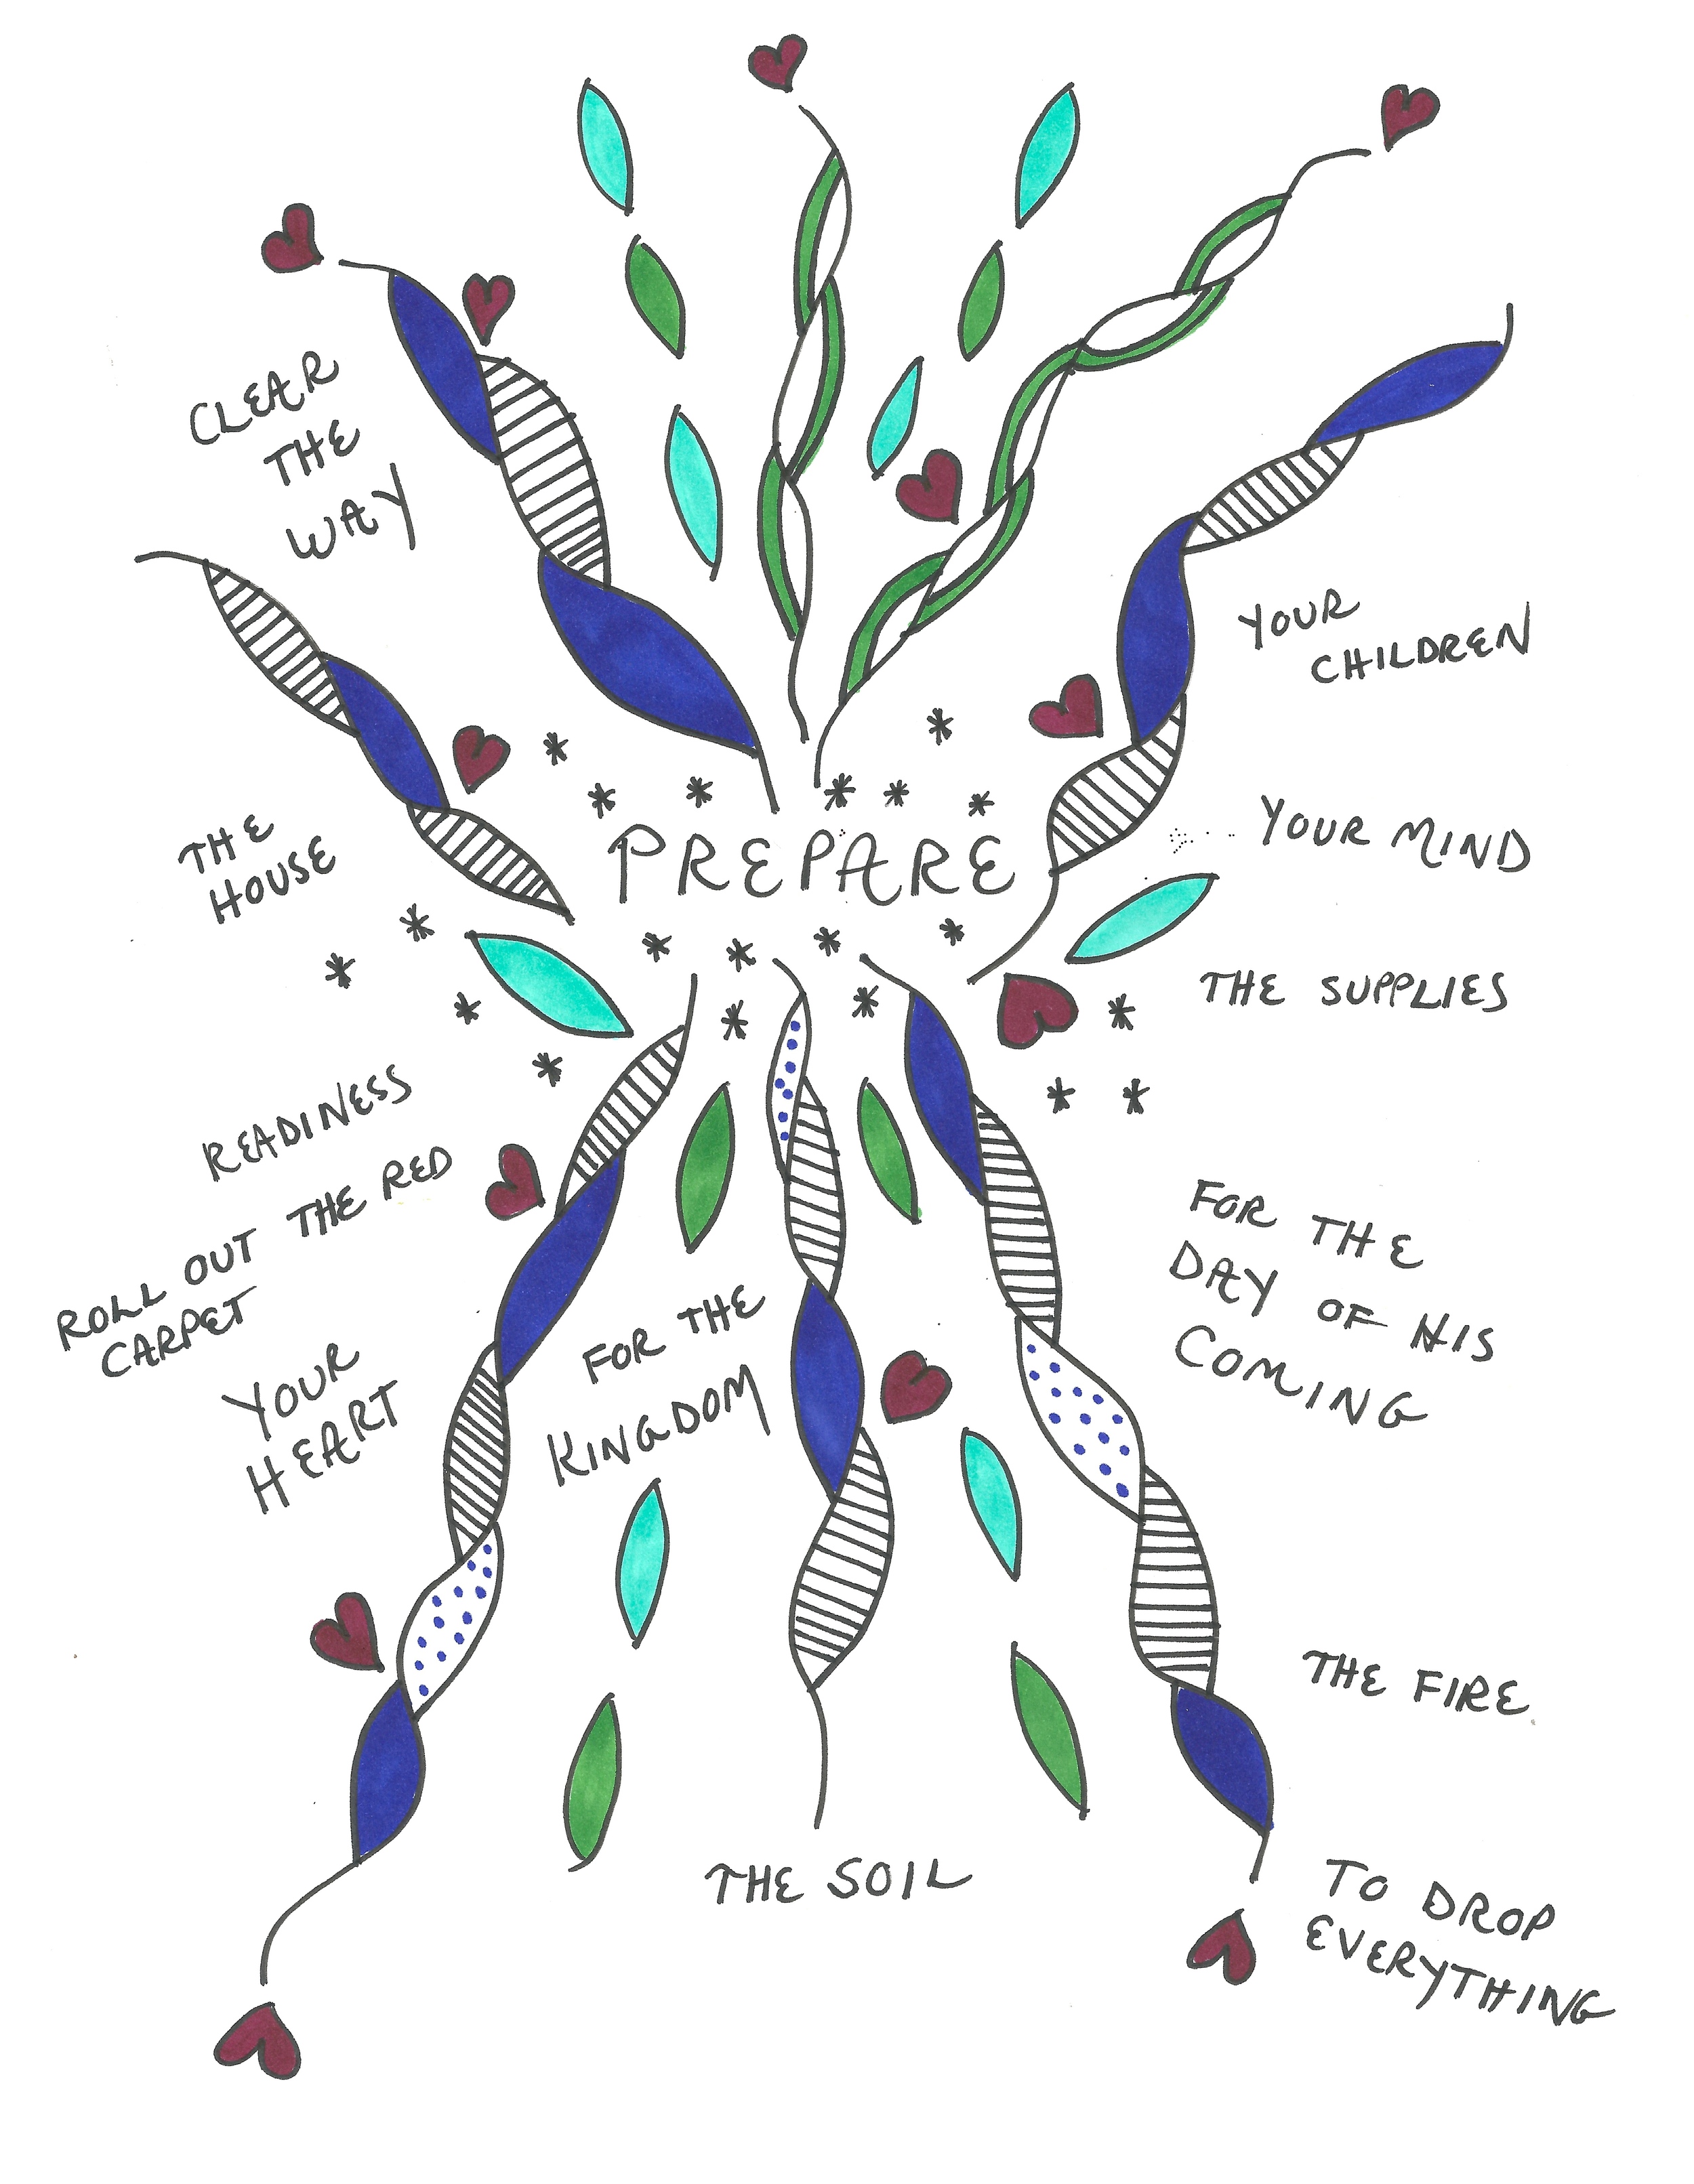 CLEAR
THE
WAY
YOUR
CHILDREN
PREPARE
THE
HOUSE
YOUR MIND
THE SUPPLIES
READINESS
ROLL OUT THE RED
CARPET
FOR THE
DAY OF HIS
COMING
YOUR
HEART
FOR THE
KINGDOM
THE FIRE
THE SOIL
TO DROP
EVERYTHING